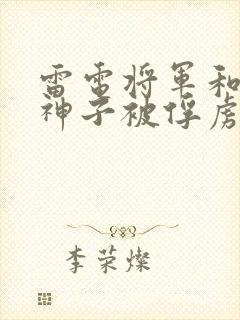 雷电将军和
神子被俘虏
李荣灿